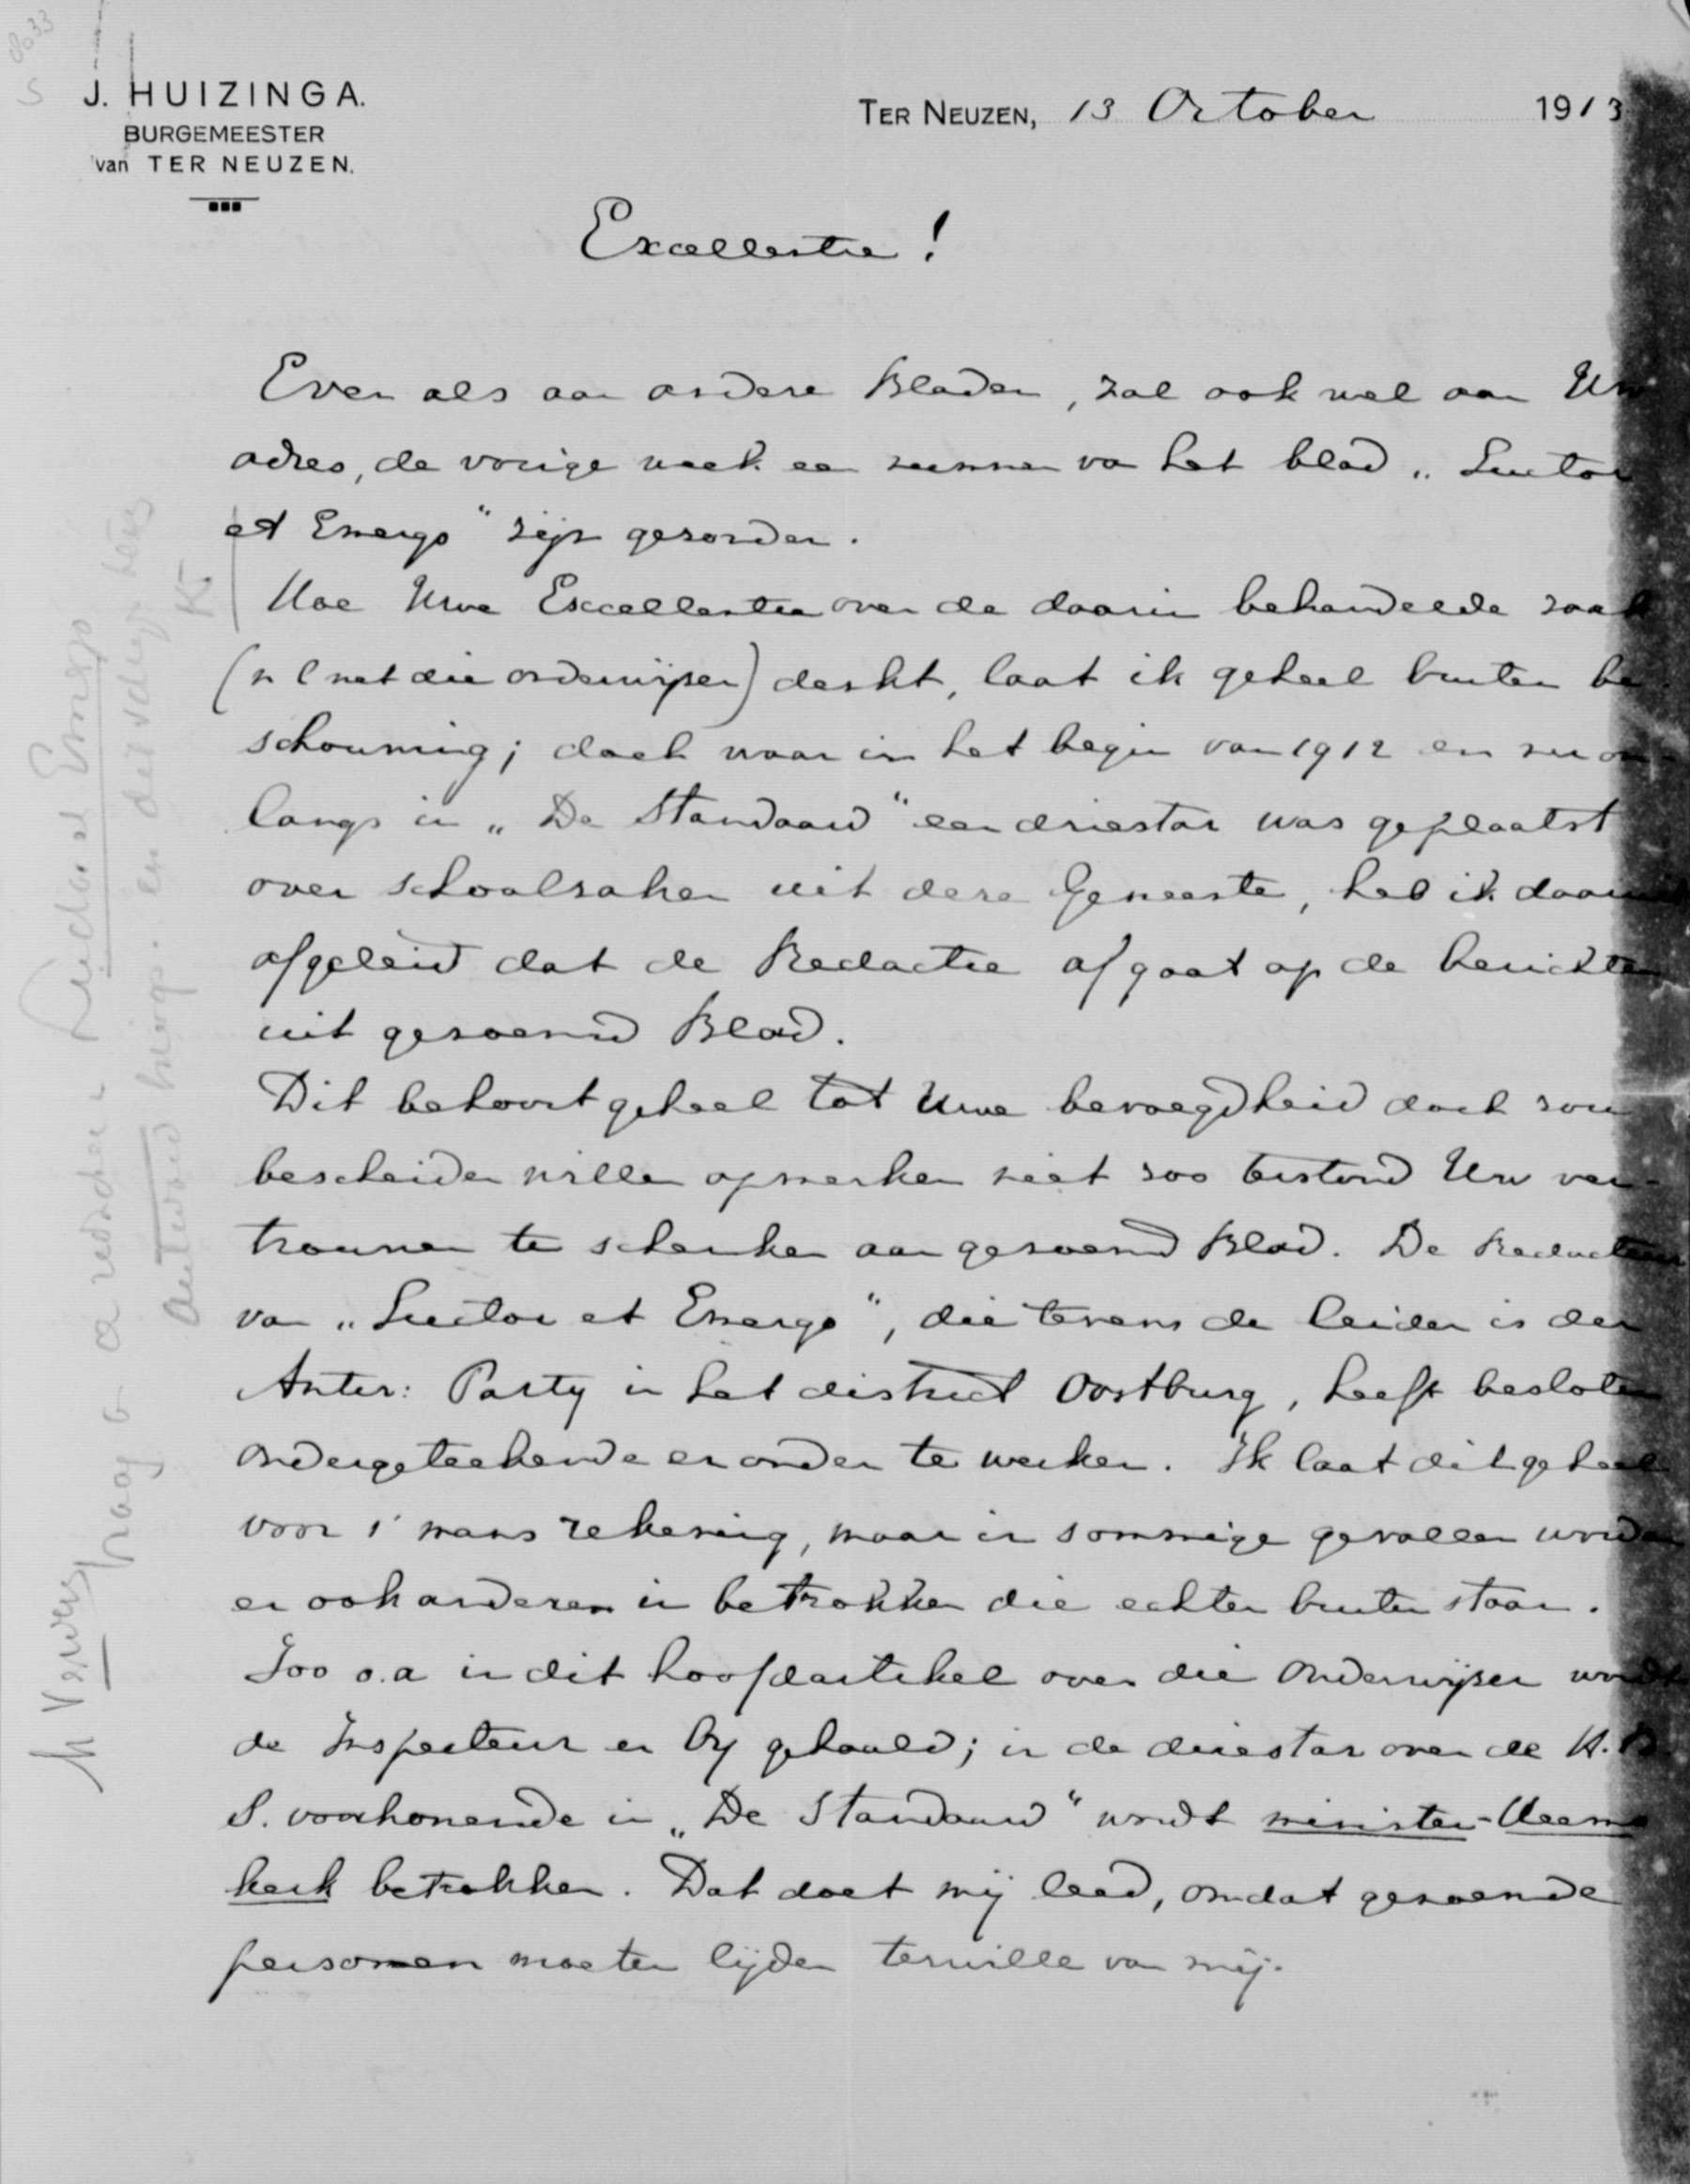 J. HUIZINGA.
BURGEMEESTER
van TER NEUZEN.
TER NEUZEN, 13 October 1913
Excellentie!
Even als aan andere Bladen, zal ook wel aan Uw
adres, de vorige week een nummer van het blad „Luctor
et Emergo" zijn gezonden.
Hoe Uwe Excellentie over de daarin behandelde zaak
(n l met die onderwijzer) denkt, laat ik geheel buiten be-
schouwing; doch waar in het begin van 1912 en nu on-
langs in „De Standaard" een driestar was geplaatst
over schoolzaken uit deze Gemeente, heb ik daaruit
afgeleid dat de Redactie afgaat op de berichten
uit genoemd Blad.
Dit behoort geheel tot Uwe bevoegdheid doch zou
bescheiden willen opmerken niet zoo terstond Uw ver-
trouwen te schenken aan genoemd Blad. De Redacteur
van „Luctor et Emergo", die tevens de leider is der
Antir: Party in het district Oostburg, heeft besloten
ondergeteekende er onder te werken. Ik laat dit geheel
voor 's mans rekening, maar in sommige gevallen worden
er ook anderen in betrokken die echter buiten staan.
Zoo o.a in dit hoofdartikel over die Onderwijzer wordt
de Inspecteur er by gehaald; in de driestar over de H.B.
S. voorkomende in „De Standaard" wordt minister-Heems
kerk betrokken. Dat doet mij leed, omdat genoemde
personen moeten lijden terwille van mij.
Luctor et Emergo
K
Antwoord